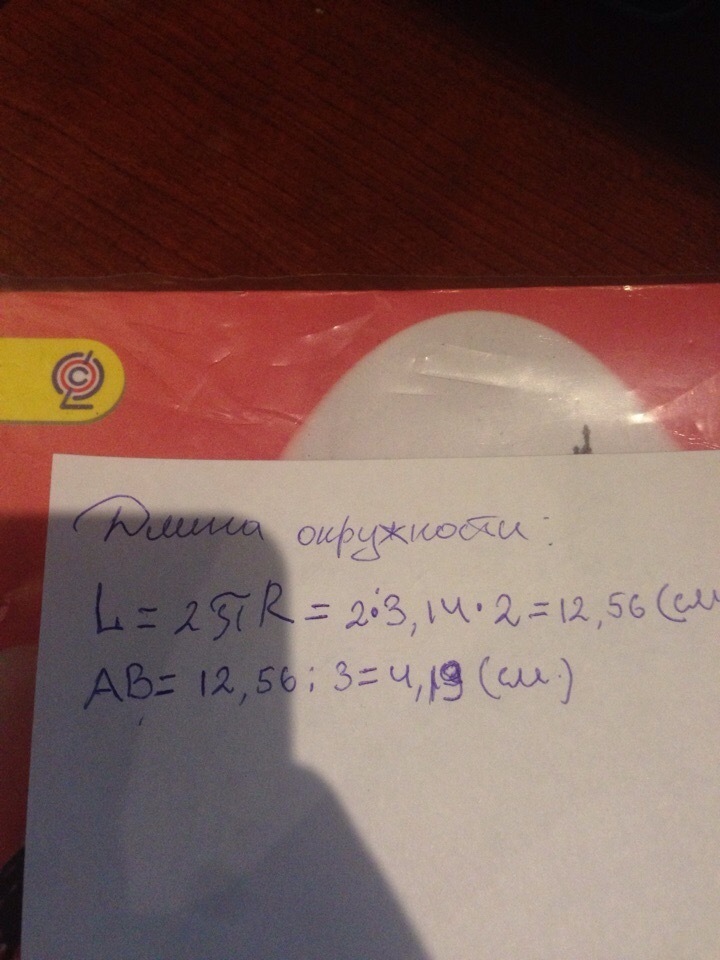 Длина окружности:
L = 2πR = 2·3,14·2 = 12,56 (см
AB = 12,56 : 3 = 4,19 (см.)